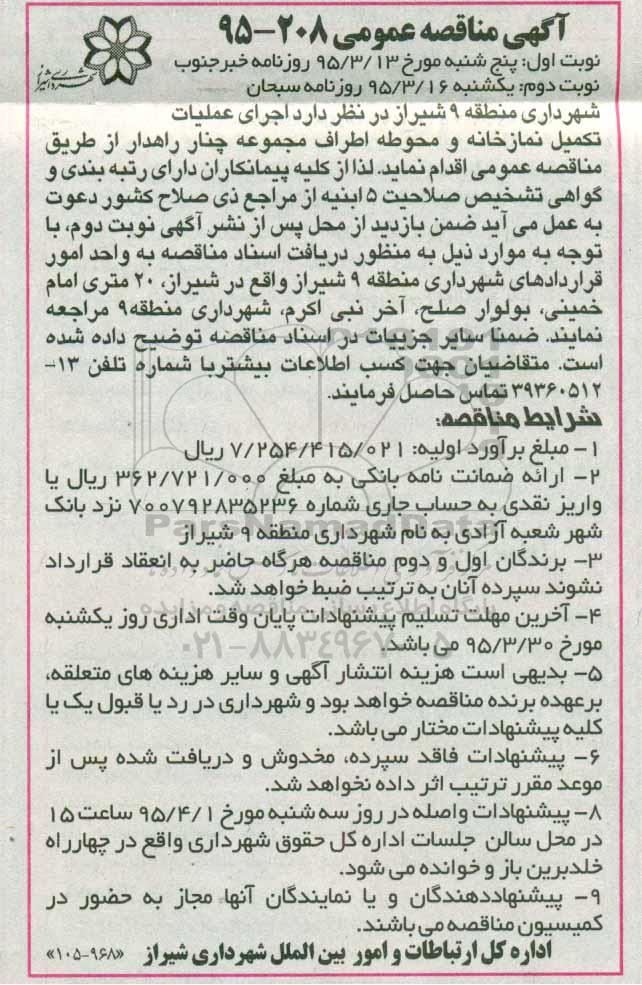 آگهی مناقصه عمومی ۲۰۸-۹۵
نوبت اول: پنج شنبه مورخ ۹۵/۳/۱۳ روزنامه خبرجنوب
نوبت دوم: یکشنبه ۹۵/۳/۱۶ روزنامه سبحان
شهرداری شیراز
شهرداری منطقه ۹ شیراز در نظر دارد اجرای عملیات
تکمیل نمازخانه و محوطه اطراف مجموعه چنار راهدار از طریق
مناقصه عمومی اقدام نماید. لذا از کلیه پیمانکاران دارای رتبه بندی و
گواهی تشخیص صلاحیت ۵ ابنیه از مراجع ذی صلاح کشور دعوت
به عمل می آید ضمن بازدید از محل پس از نشر آگهی نوبت دوم، با
توجه به موارد ذیل به منظور دریافت اسناد مناقصه به واحد امور
قراردادهای شهرداری منطقه ۹ شیراز واقع در شیراز، ۲۰ متری امام
خمینی، بولوار صلح، آخر نبی اکرم، شهرداری منطقه۹ مراجعه
نمایند. ضمنا سایر جزییات در اسناد مناقصه توضیح داده شده
است. متقاضیان جهت کسب اطلاعات بیشتربا شماره تلفن ۱۳-
۳۹۳۶۰۵۱۲ تماس حاصل فرمایند.
شرایط مناقصه:
۱- مبلغ برآورد اولیه: ۷/۲۵۴/۴۱۵/۰۲۱ ریال
۲- ارائه ضمانت نامه بانکی به مبلغ ۳۶۲/۷۲۱/۰۰۰ ریال یا
واریز نقدی به حساب جاری شماره ۷۰۰۷۹۲۸۳۵۲۳۶ نزد بانک
شهر شعبه آزادی به نام شهرداری منطقه ۹ شیراز
۳- برندگان اول و دوم مناقصه هرگاه حاضر به انعقاد قرارداد
نشوند سپرده آنان به ترتیب ضبط خواهد شد.
۴- آخرین مهلت تسلیم پیشنهادات پایان وقت اداری روز یکشنبه
مورخ ۹۵/۳/۳۰ می باشد.
۵- بدیهی است هزینه انتشار آگهی و سایر هزینه های متعلقه،
برعهده برنده مناقصه خواهد بود و شهرداری در رد یا قبول یک یا
کلیه پیشنهادات مختار می باشد.
۶- پیشنهادات فاقد سپرده، مخدوش و دریافت شده پس از
موعد مقرر ترتیب اثر داده نخواهد شد.
۸- پیشنهادات واصله در روز سه شنبه مورخ ۹۵/۴/۱ ساعت ۱۵
در محل سالن جلسات اداره کل حقوق شهرداری واقع در چهارراه
خلدبرین باز و خوانده می شود.
۹- پیشنهاددهندگان و یا نمایندگان آنها مجاز به حضور در
کمیسیون مناقصه می باشند.
اداره کل ارتباطات و امور بین الملل شهرداری شیراز «۱۰۵-۹۶۸»
ParsNamadData
پایگاه اطلاع رسانی مناقصه و مزایده
۰۲۱-۸۸۳۴۹۶۷۰-۵